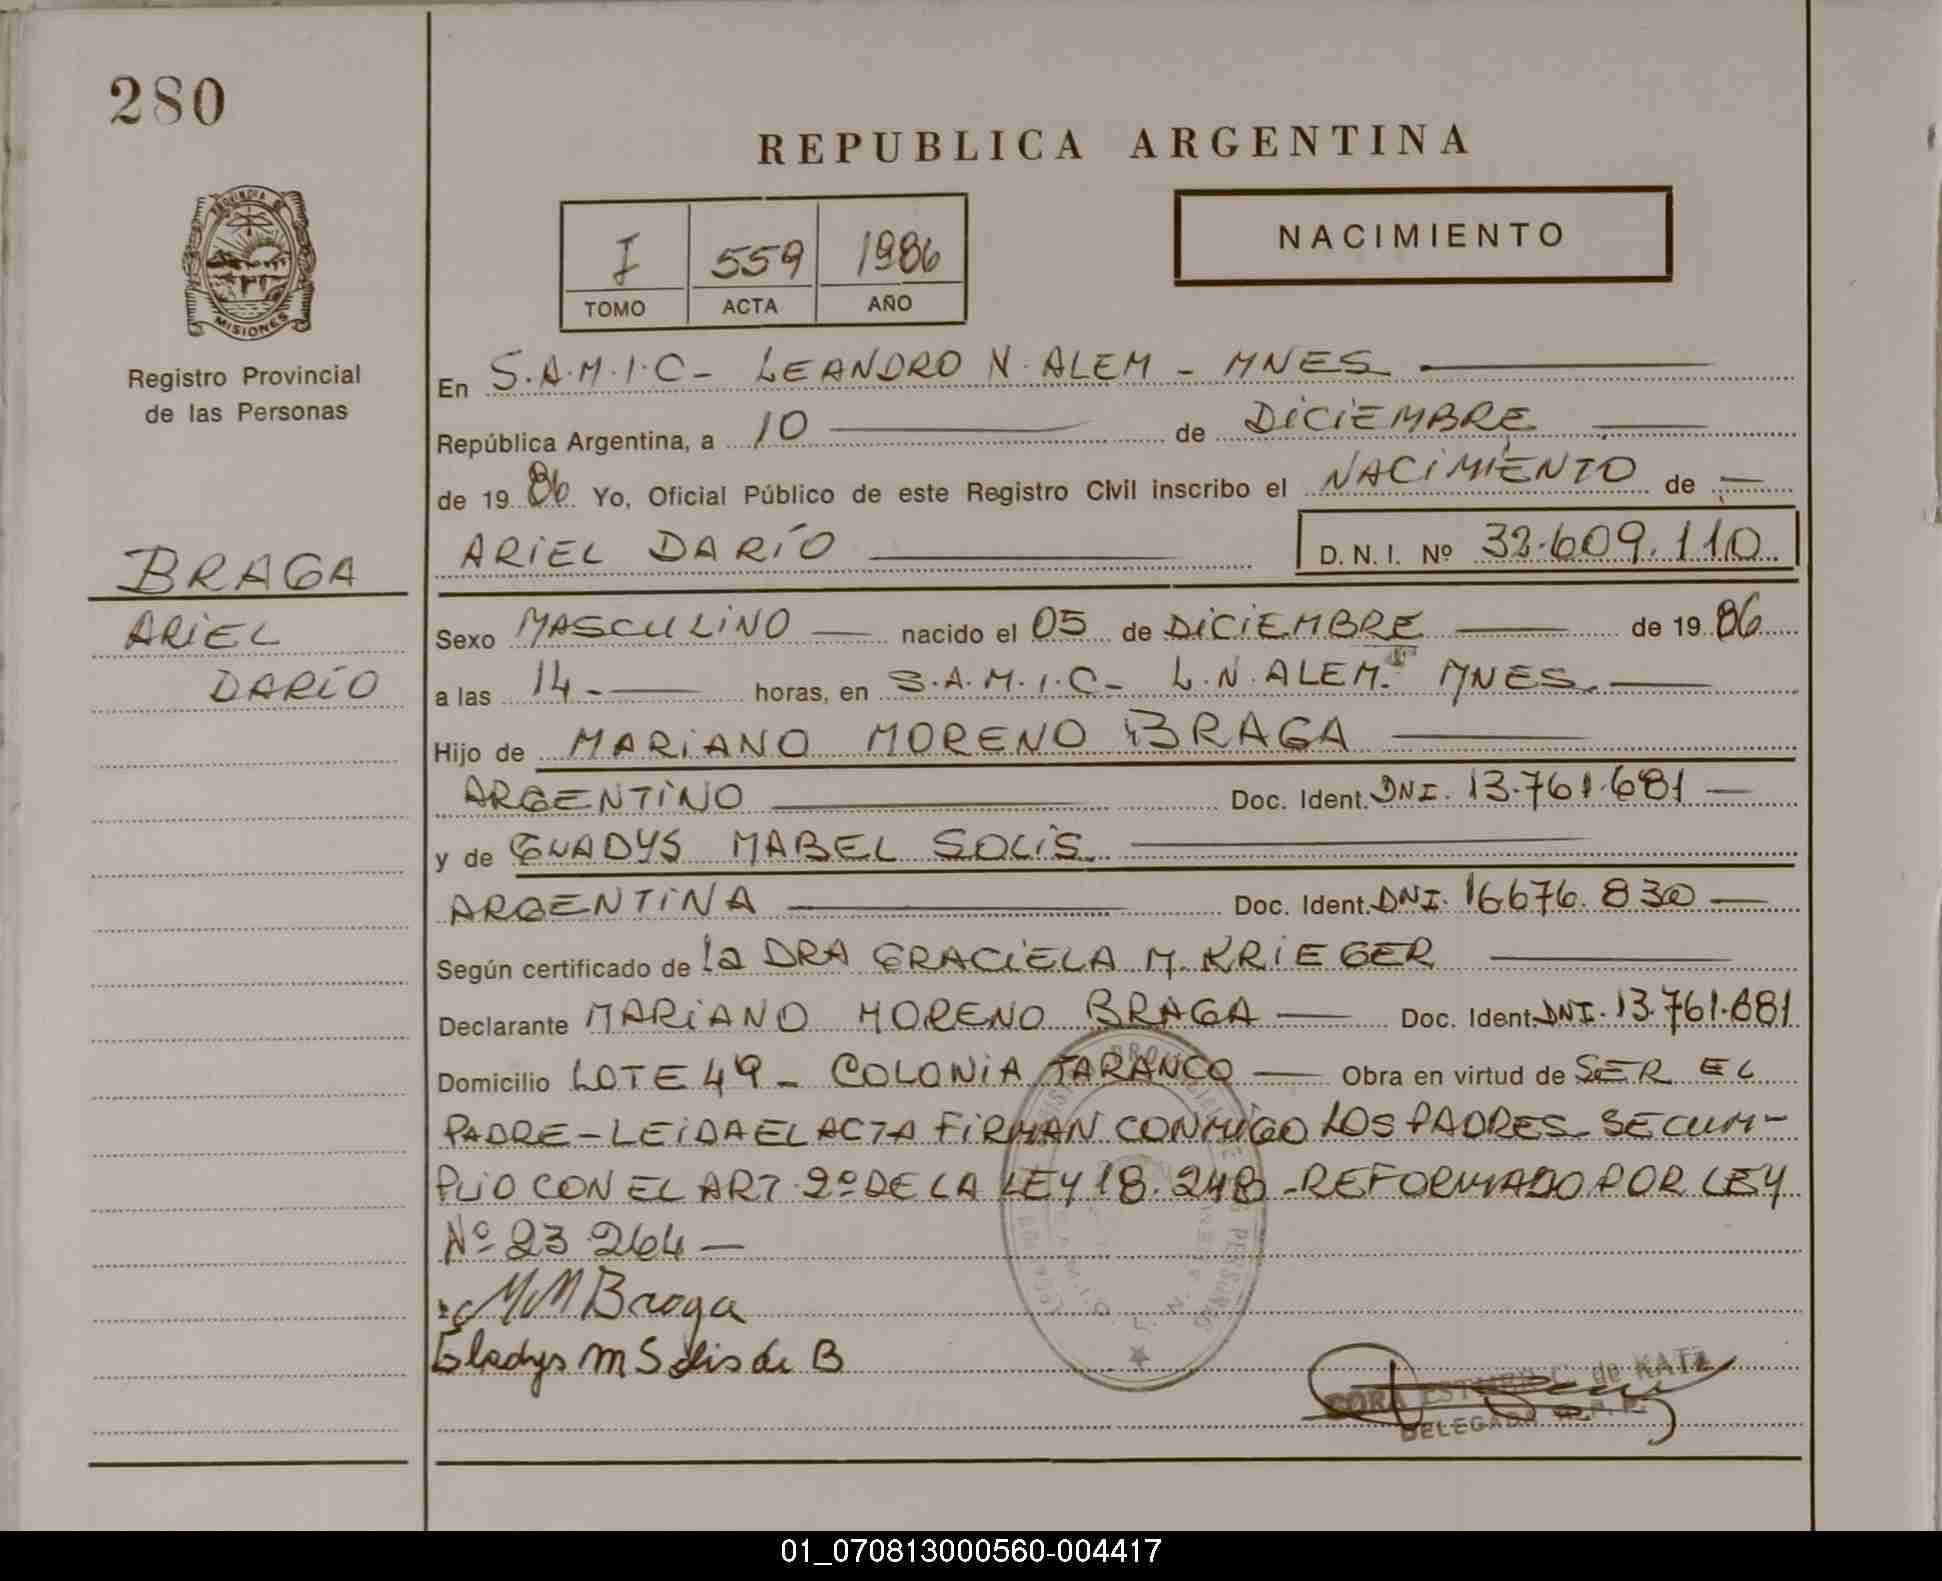 280
REPUBLICA ARGENTINA
I 559 1986
TOMO ACTA AÑO
NACIMIENTO
PROVINCIA DE
MISIONES
Registro Provincial
de las Personas
BRAGA
ARIEL
DARÍO
En S.A.M.I.C- LEANDRO N. ALEM - MNES
República Argentina, a 10 de DICIEMBRE
de 19 86 Yo, Oficial Público de este Registro Civil inscribo el NACIMIENTO de
ARIEL DARÍO D.N.I. Nº 32.609.110
Sexo MASCULINO nacido el 05 de DICIEMBRE de 19 86
a las 14- horas, en S.A.M.I.C- L.N.ALEM. MNES
Hijo de MARIANO MORENO BRAGA
ARGENTINO Doc. Ident. DNI. 13.761.681
y de GLADYS MABEL SOLIS
ARGENTINA Doc. Ident. DNI. 16676.830
Según certificado de la DRA GRACIELA M. KRIEGER
Declarante MARIANO MORENO BRAGA Doc. Ident. DNI. 13.761.681
Domicilio LOTE 49 - COLONIA TARANCO Obra en virtud de SER EL
PADRE - LEIDA EL ACTA FIRMAN CONMIGO LOS PADRES SE CUM-
PLIO CON EL ART. 2º DE LA LEY 18.248 - REFORMADO POR LEY
Nº 23.264 -
MM Braga
Gladys M Solis de B
de KATZ
DELEGADA
01_070813000560-004417